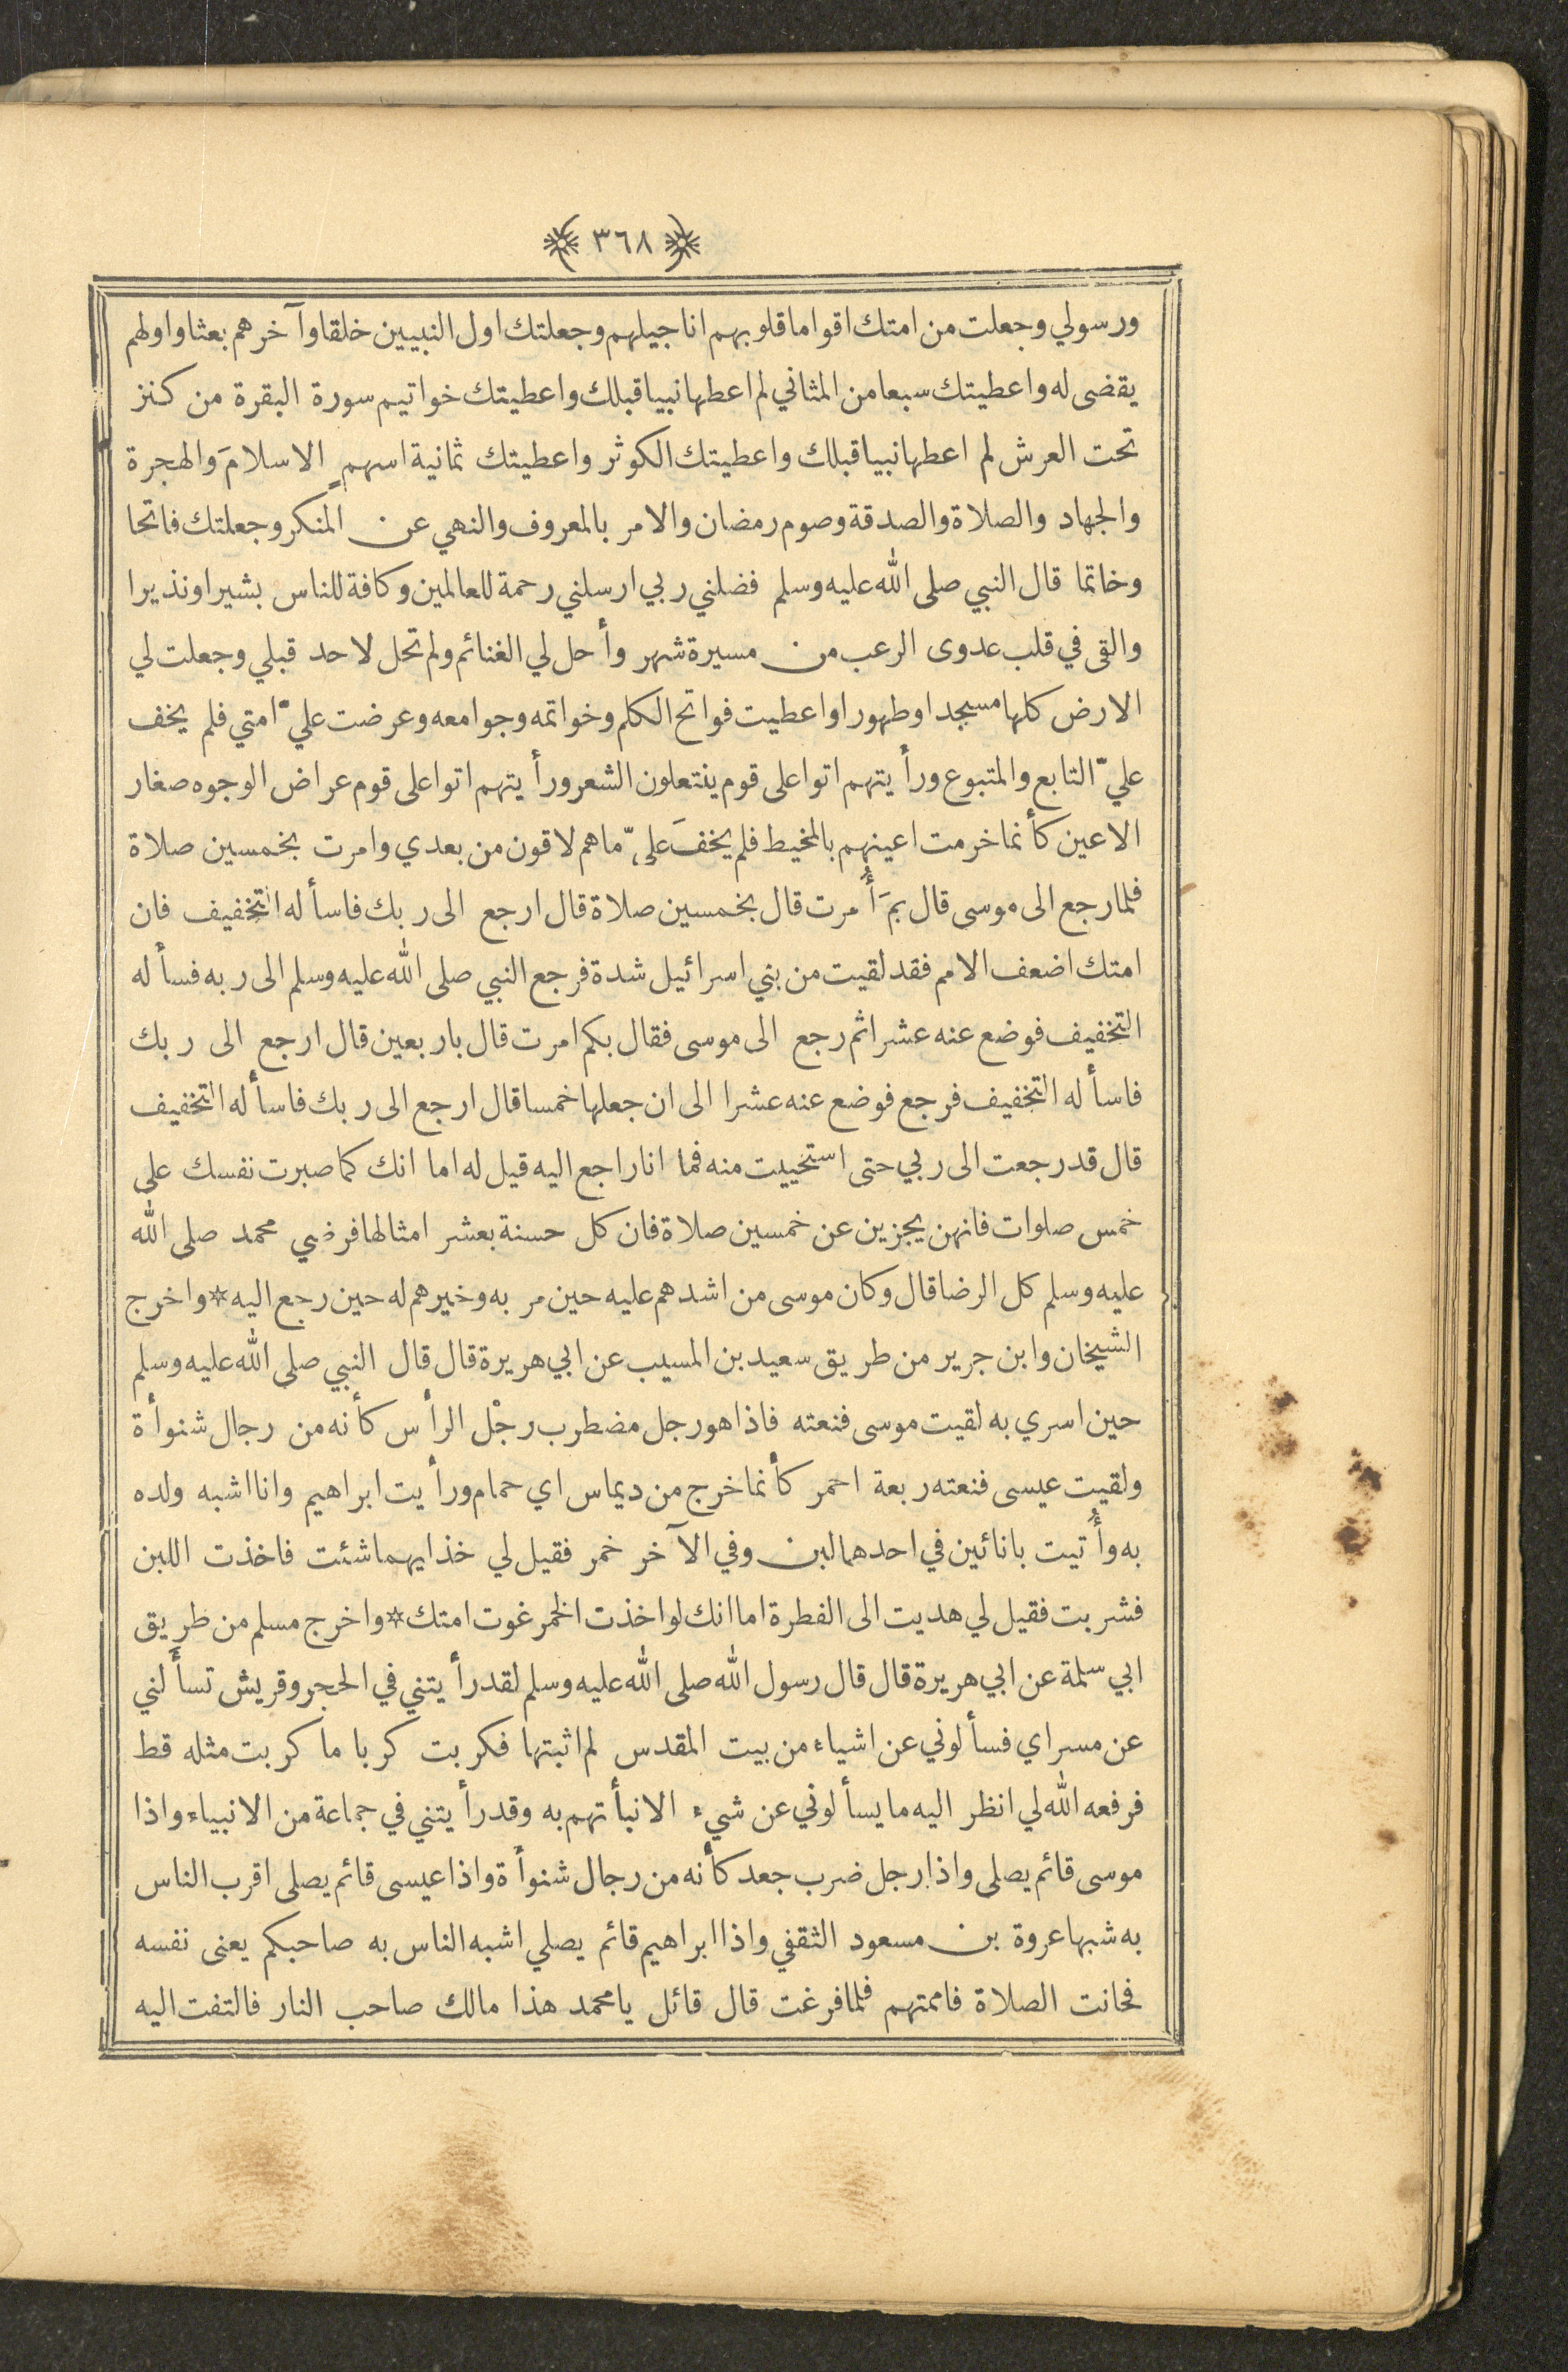 ﴿ ٣٦٨ ﴾
ورسولي وجعلت من امتك اقواما قلوبهم اناجيلهم وجعلتك اول النبيين خلقا وآخرهم بعثا واولهم
يقضى له واعطيتك سبعا من المثاني لم اعطها نبيا قبلك واعطيتك خواتيم سورة البقرة من كنز
تحت العرش لم اعطها نبيا قبلك واعطيتك الكوثر واعطيتك ثمانية اسهمٍ الاسلامَ والهجرة
والجهاد والصلاة والصدقة وصوم رمضان والامر بالمعروف والنهي عن المنكر وجعلتك فاتحا
وخاتما قال النبي صلى الله عليه وسلم فضلني ربي ارسلني رحمة للعالمين وكافة للناس بشيرا ونذيرا
والقى في قلب عدوى الرعب من مسيرة شهر وأحل لي الغنائم ولم تحل لاحد قبلي وجعلت لي
الارض كلها مسجدا وطهورا واعطيت فواتح الكلم وخواتمه وجوامعه وعرضت عليّ امتي فلم يخف
عليّ التابع والمتبوع ورأيتهم اتوا على قوم ينتعلون الشعر ورأيتهم اتوا على قوم عراض الوجوه صغار
الاعين كأنما خرمت اعينهم بالمخيط فلم يخفَ عليّ ما هم لاقون من بعدي وامرت بخمسين صلاة
فلما رجع الى موسى قال بمَ أُمرت قال بخمسين صلاة قال ارجع الى ربك فاسأله التخفيف فان
امتك اضعف الامم فقد لقيت من بني اسرائيل شدة فرجع النبي صلى الله عليه وسلم الى ربه فسأله
التخفيف فوضع عنه عشرا ثم رجع الى موسى فقال بكم امرت قال باربعين قال ارجع الى ربك
فاسأله التخفيف فرجع فوضع عنه عشرا الى ان جعلها خمسا قال ارجع الى ربك فاسأله التخفيف
قال قد رجعت الى ربي حتى استحييت منه فما انا راجع اليه قيل له اما انك كما صبرت نفسك على
خمس صلوات فانهن يجزين عن خمسين صلاة فان كل حسنة بعشر امثالها فرضي محمد صلى الله
عليه وسلم كل الرضا قال وكان موسى من اشدهم عليه حين مر به وخيرهم له حين رجع اليه * واخرج
الشيخان وابن جرير من طريق سعيد بن المسيب عن ابي هريرة قال قال النبي صلى الله عليه وسلم
حين اسري به لقيت موسى فنعته فاذا هو رجل مضطرب رجْل الرأس كأنه من رجال شنوأة
ولقيت عيسى فنعته ربعة احمر كأنما خرج من ديماس اي حمام ورأيت ابراهيم وانا اشبه ولده
به وأُتيت بانائين في احدهما لبن وفي الآخر خمر فقيل لي خذ ايهما شئت فاخذت اللبن
فشربت فقيل لي هديت الى الفطرة اما انك لو اخذت الخمر غوت امتك * واخرج مسلم من طريق
ابي سلمة عن ابي هريرة قال قال رسول الله صلى الله عليه وسلم لقد رأيتني في الحجر وقريش تسألني
عن مسراي فسألوني عن اشياء من بيت المقدس لم اثبتها فكربت كربا ما كربت مثله قط
فرفعه الله لي انظر اليه ما يسألوني عن شيء الا نبأتهم به وقد رأيتني في جماعة من الانبياء واذا
موسى قائم يصلى واذا رجل ضرب جعد كأنه من رجال شنوأة واذا عيسى قائم يصلى اقرب الناس
به شبها عروة بن مسعود الثقفي واذا ابراهيم قائم يصلي اشبه الناس به صاحبكم يعنى نفسه
فحانت الصلاة فاممتهم فلما فرغت قال قائل يا محمد هذا مالك صاحب النار فالتفت اليه